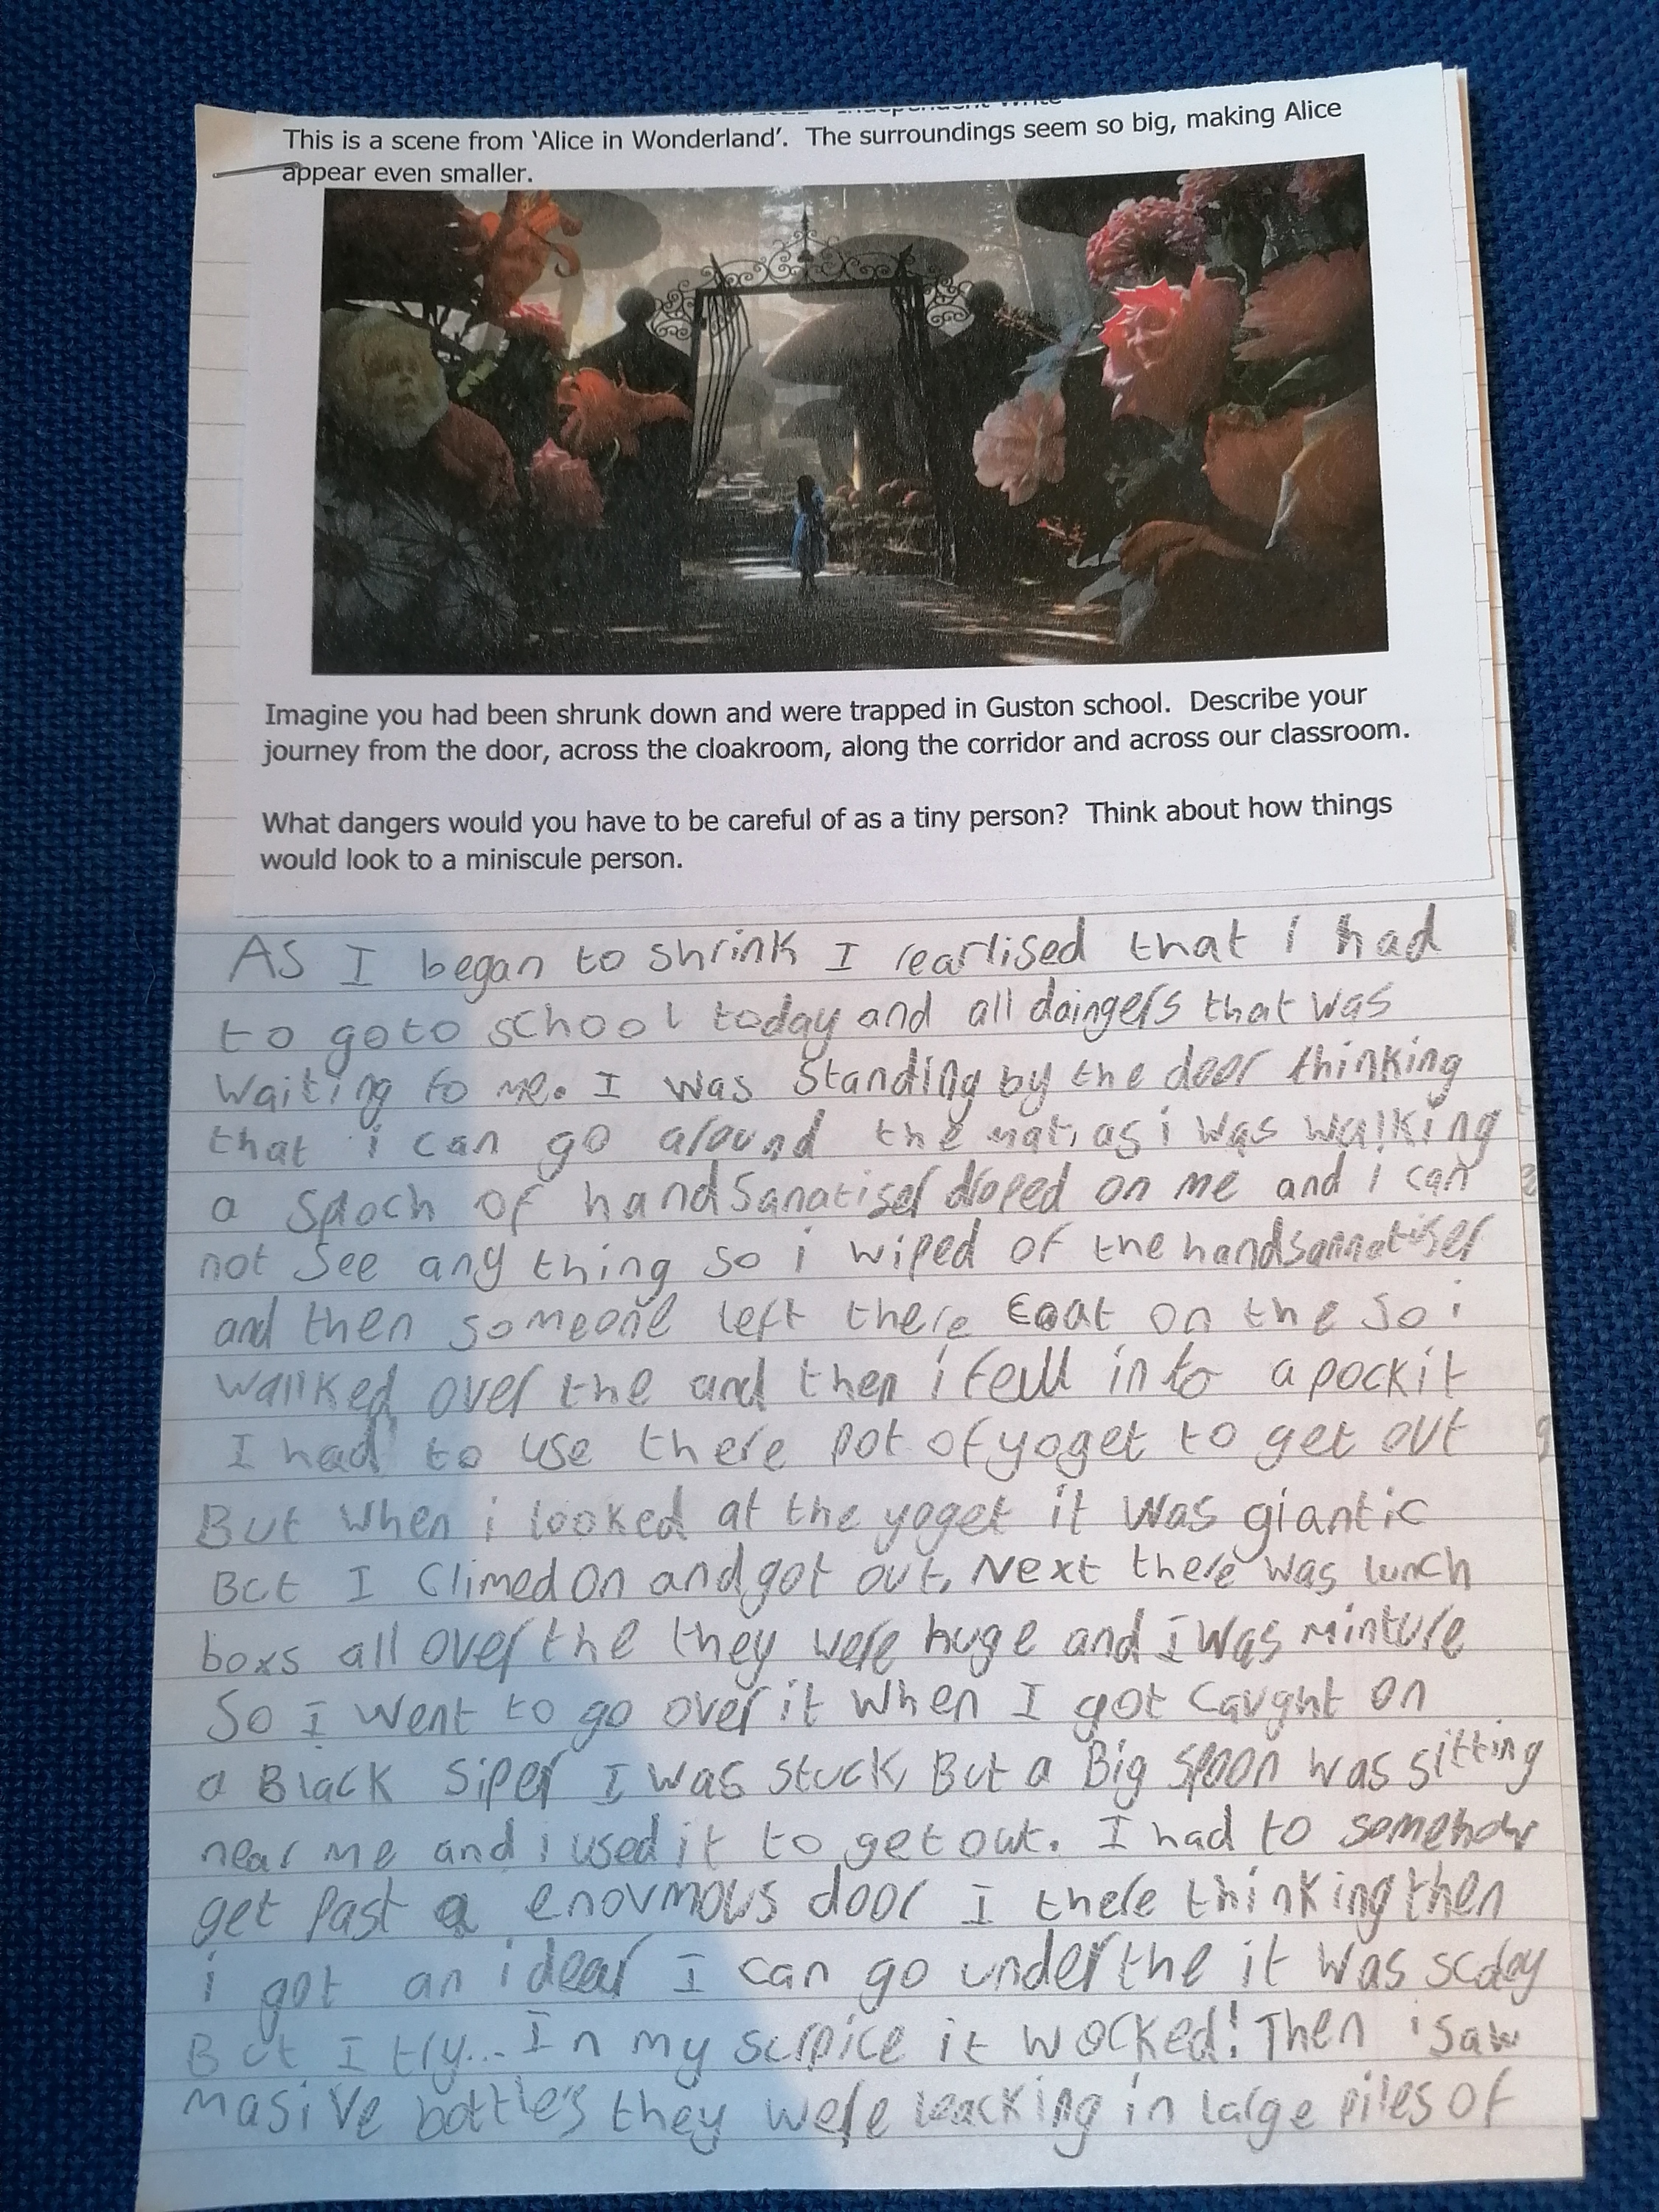 Independent Write
This is a scene from 'Alice in Wonderland'. The surroundings seem so big, making Alice
appear even smaller.
Imagine you had been shrunk down and were trapped in Guston school. Describe your
journey from the door, across the cloakroom, along the corridor and across our classroom.
What dangers would you have to be careful of as a tiny person? Think about how things
would look to a miniscule person.
As I began to shrink I rearlised that i had
to go to school today and all daingers that was
waiting fo me. I was standing by the door thinking
that i can go around the mat, as i was walking
a sploch of handsanatiser droped on me and i can
not see any thing so i wiped of the handsannatiser
and then someone left there coat on the so i
wallked over the and then i feull in to a pockit
I had to use there pot of yoget to get out
But when i looked at the yoget it was giantic
But I climed on and got out. Next there was lunch
boxs all over the they were huge and i was minture
So I went to go over it when I got caught on
a Black siper I was stuck, But a Big spoon was sitting
near me and i used it to get out. I had to somehow
get past a enovmous door I there thinking then
i got an idear I can go under the it was scday
But I try... In my surpice it wocked! Then i saw
masive bottles they were leacking in large piles of